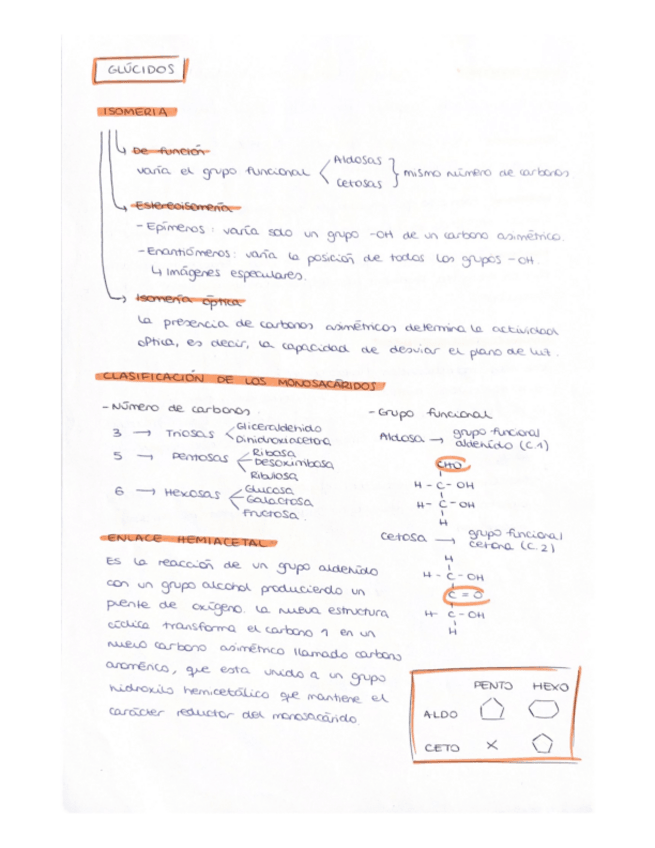 GLÚCIDOS
ISOMERIA
De función
varía el grupo funcional Aldosas
cetosas
mismo número de carbonos
Estereoisomería
- Epímeros: varía solo un grupo -OH de un carbono asimétrico.
- Enantiómeros: varía la posición de todos los grupos -OH.
↳ Imágenes especulares.
Isomería óptica
La presencia de carbonos asimétricos determina la actividad
óptica, es decir, la capacidad de desviar el plano de luz.
CLASIFICACIÓN DE LOS MONOSACÁRIDOS
- Número de carbonos
3 → Triosas Gliceraldehido
Dihidroxiacetona
5 → Pentosas Ribosa
Desoxirribosa
Ribulosa
6 → Hexosas Glucosa
Galactosa
Fructosa.
- Grupo funcional
Aldosa → grupo funcional
aldehído (C.1)
CHO
H - C - OH
H - C - OH
H
cetosa → grupo funcional
cetona (C.2)
H
H - C - OH
C = O
H - C - OH
H
ENLACE HEMIACETAL
Es la reacción de un grupo aldehído
con un grupo alcohol produciendo un
puente de oxígeno. La nueva estructura
cíclica transforma el carbono 1 en un
nuevo carbono asimétrico llamado carbono
anomérico, que esta unido a un grupo
hidroxilo hemicetálico que mantiene el
carácter reductor del monosacárido.
PENTO HEXO
ALDO
CETO X